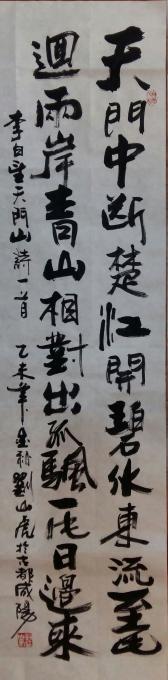 天門中斷楚江開碧水東流至此
迴兩岸青山相對出孤颿一片日邊來
李白望天門山詩一首 乙未年 劉山虎於古都咸陽